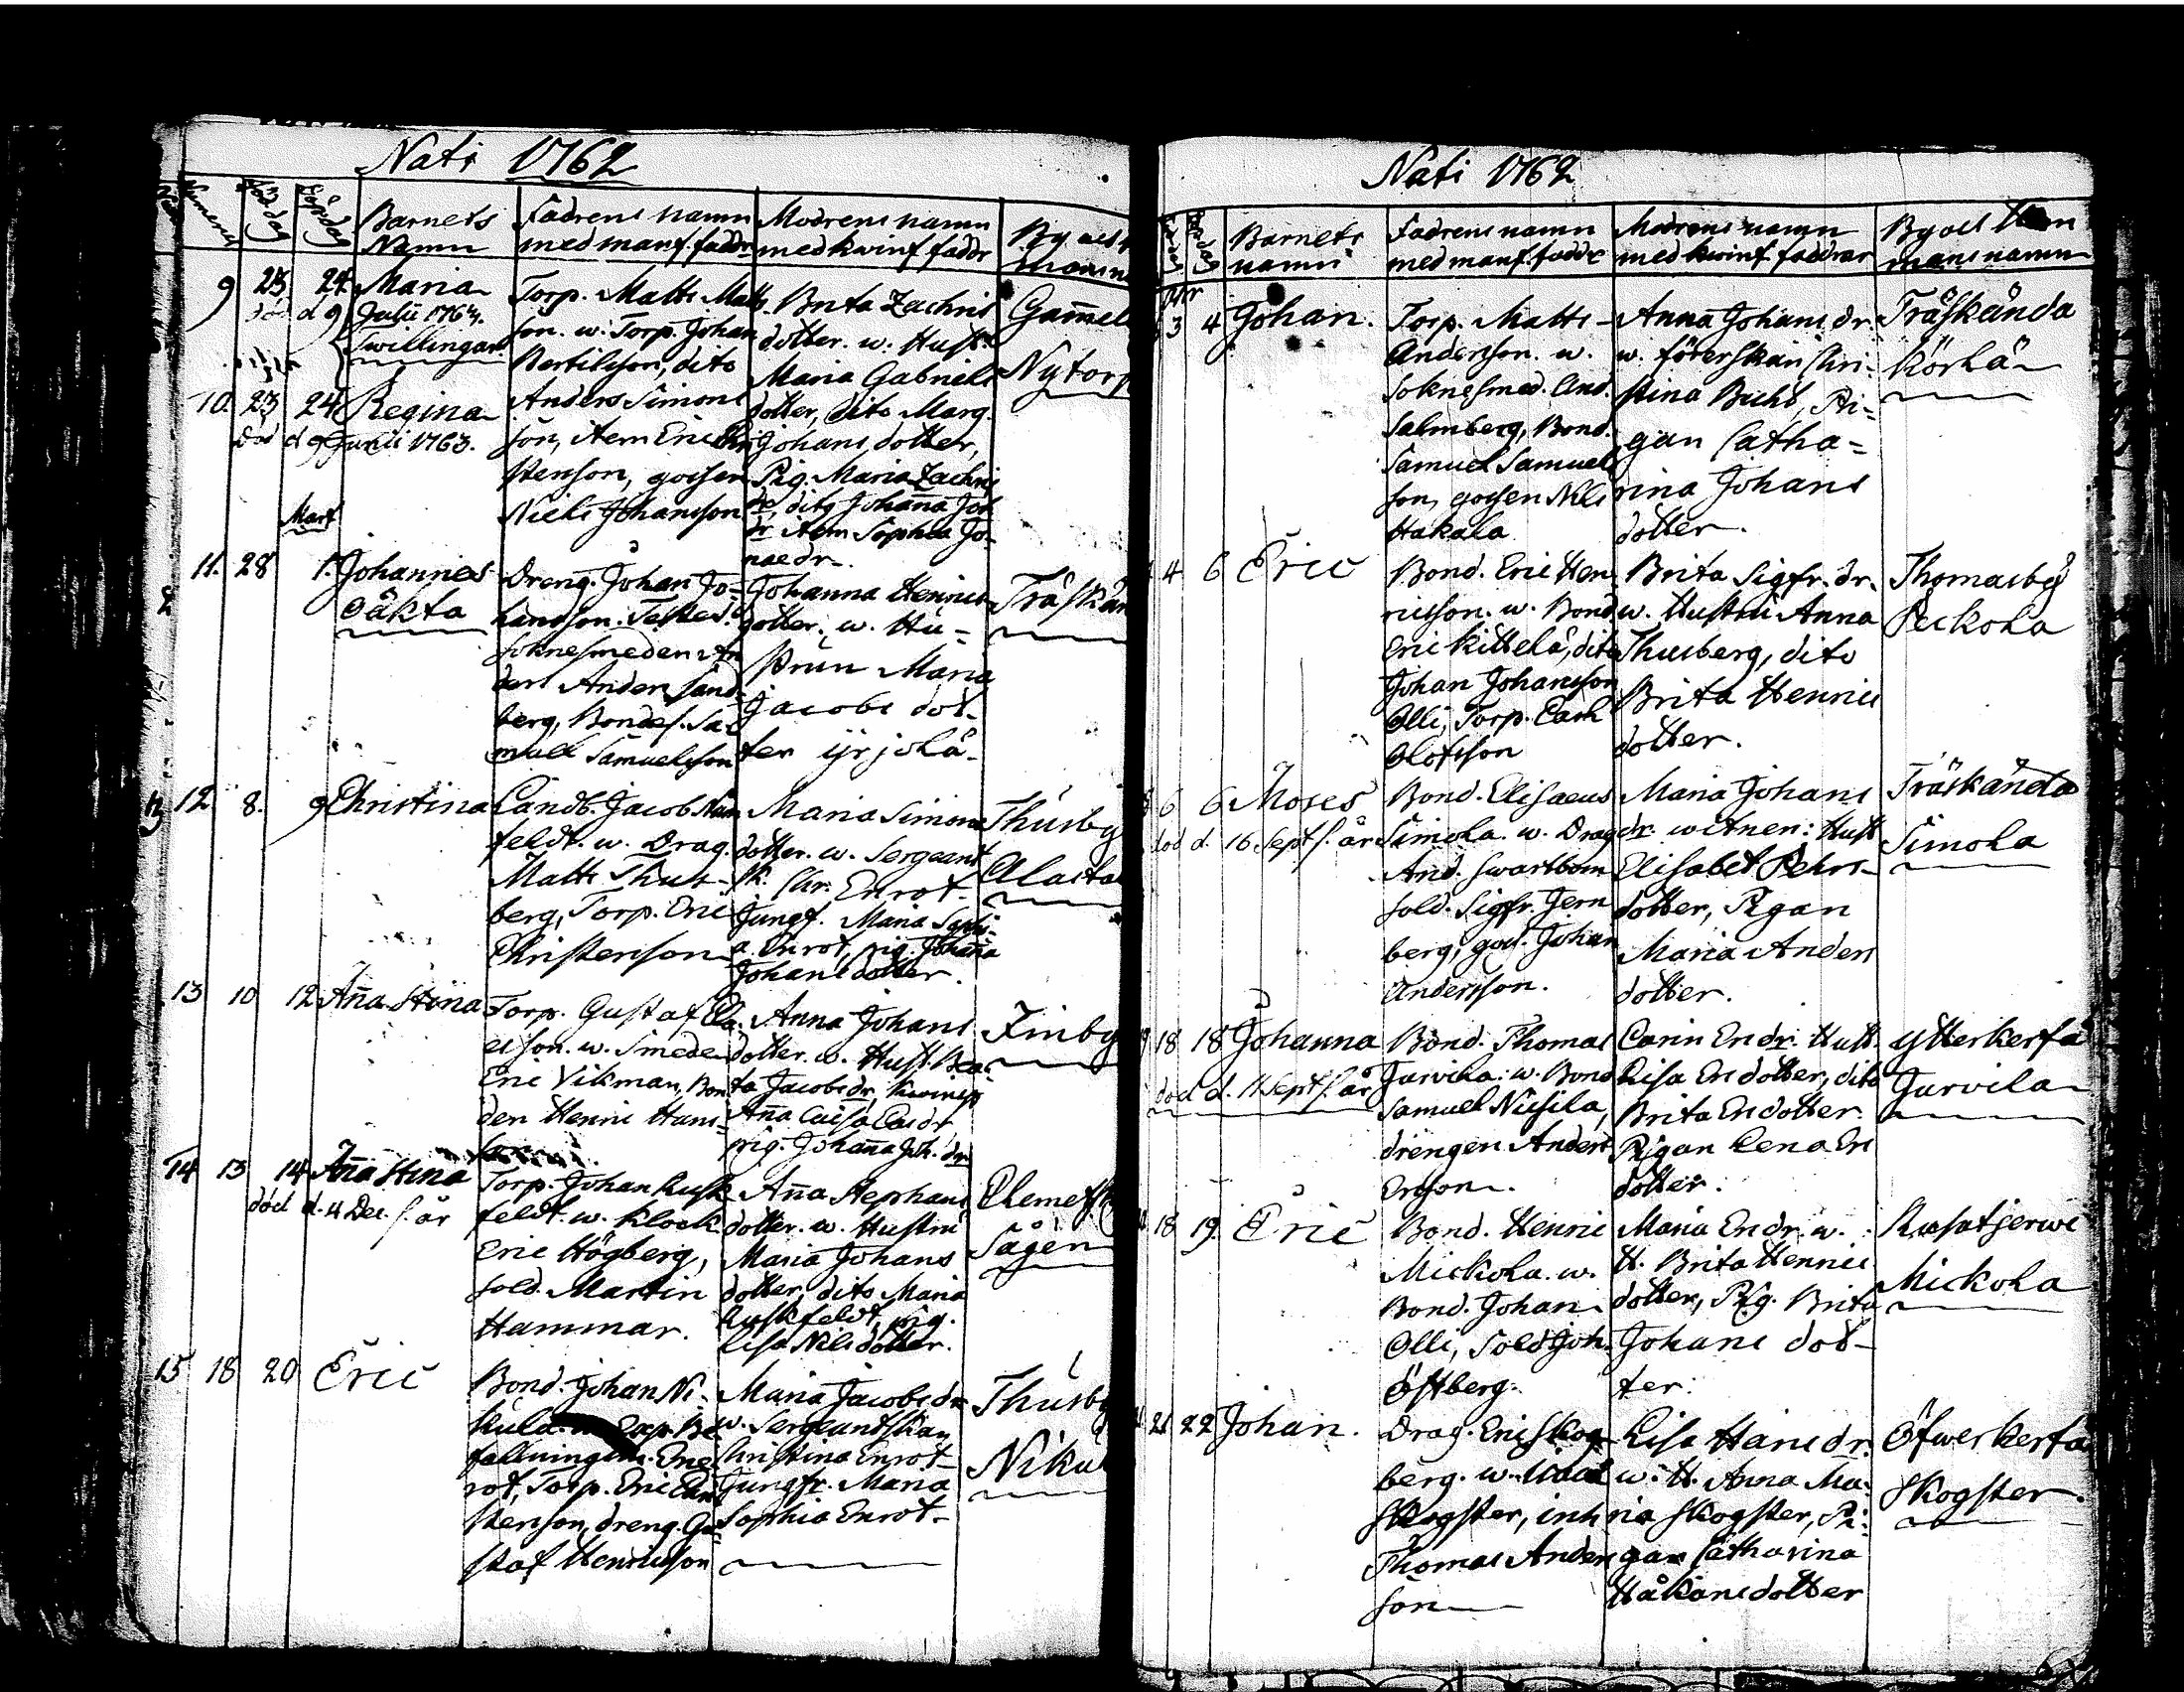 Nati 1762
Numerus
Född dag
Döpt dag
Barnets Namn
Fadrens namn med manf. faddr
Modrens namn med kwinf faddr
By och
9 23 24 Maria
död d 9 Julii 1763.
Twillingar
Torp. Matts Matts
son. w. Torp. Johan
Bertilsson, dito
Anders Simons
son, item Eric Chri
stenson, gossen
Niels Johansson
Brita Zachris
dotter. w. Hust.
Maria Gabriels
dotter, dito Marg.
Johans dotter,
Pig. Maria Zachris
dr, dito Johanna Joh
dr item Sophia Jo-
nae dr.
Gam̅el
Nytorp
10. 23 24 Regina
död d 9 Junii 1763.
Mart
11. 28 1. Johannes
Oäkta
Dreng. Johan Jo-
hansson. Testes.
soknesmeden An
ders Anders Sand-
berg, Bondes. Sa-
muel Samuelsson
Johanna Henrics
dotter. w. Hu-
strun Maria
Jacobs dot-
ter Yrjolä.
Träskän
12. 8. 9 Christina
Landb. Jacob
feldt. w. Drag.
Matts Thus-
berg, Torp. Eric
Christenson
Maria Simons
dotter. w. Sergeant
sk. Chr. Enrot-
Jungf. Maria Sophi-
a Enrot, pig. Johana
Johansdotter.
Thusby
Alasta
13 10 12 An̅a Stina
Torp. Gustaf Ela
eisson. w. Smeden
Eric Vikman, Bon
den Henric Hans-
son
Anna Johans
dotter. w. Hust. Bea
ta Jacobs dr, kwinsp
An̅a Caisa Ersdr
pig. Johan̅a Joh. dr
Finby
14 13 14 An̅a Stina
död d. 4 Dec. s. år
Torp. Johan Rusk
feldt. w. Klock
Eric Högberg,
sold. Martin
Hammar.
An̅a Stephans
dotter. w. Hustru
Maria Johans
dotter, dito Maria
Ruskfeldt, pig.
Lisa Nilsdotter.
Clemets
Sågen
15 18 20 Eric
Bond. Johan Ni-
kula
fallningsm. Ene
rot, Torp. Eric Chri
stenson, dreng. Gu
staf Henricsson
Maria Jacobsdr
w. Sergeantskan
Christina Enrot-
Jungfr. Maria
Sophia Enrot-
Thusby
Niku
Nati 1762
Barnets namn
Fadrens namn med manf. faddr
Modrens namn med kwinf faddrar
By och Hem mans namn
3 4 Johan.
Torp. Matts
Andersson. w.
Soknesmed. And.
Salmberg, Bond.
Samuel Samuels
son, gossen Nils
Hakala
Anna Johans dr.
w. Chri-
stina Pi-
gan Catha-
rina Johans
dotter.
Träskända
Körkä
4 6 Eric
Bond. Eric Hen
ricsson. w. Bond
Eric Kittelä, dito
Johan Johansson
Olli, Torp. Carl
Olofsson
Brita Sigfr. dr.
w. Hustru Anna
Thusberg, dito
Brita Henrics
dotter.
Thomasby
Peckola
6 6 Moses
död d. 16 Sept s. år
Bond. Elisaeus
Simola. w. Drag
And. Swartbom
sold. Sigfr. Jern
berg, goss. Johan
Andersson.
Maria Johans
dr. witnen: Hust
Elisabet Pehrs-
dotter, Pigan
Maria Anders
dotter.
Träskända
Simola
18 18 Johanna
död d. 11 Sept s. år
Bond. Thomas
Jarvila. w. Bond
Samuel Nissila,
drengen Anders
Ersson.
Carin Ersdr. Hust.
Lisa Ersdotter, dito
Brita Ersdotter.
Pigan Lena Ers
dotter.
Ytterkerfa
Jarvila
18 19. Eric
Bond. Henric
Mickola. w.
Bond. Johan
Olli, Sold Joh.
Östberg.
Maria Ersdr. w.
H. Brita Henrics
dotter, Pig. Brita
Johans dot-
ter.
Rusotjerwi
Mickola
21 22 Johan.
Drag. Eric Skog
berg. w.
Skogster, inh
Thomas Anders
son
Lisa Hansdr.
w. H. Anna Ma-
ria Skogster, Pi-
gan Catharina
Håkansdotter
Öfwerkerfa
Skogster.